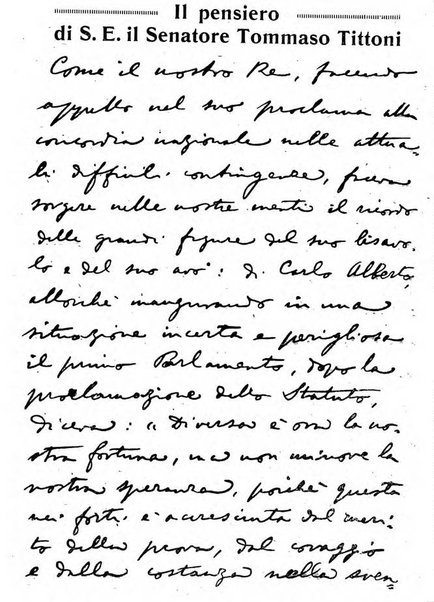 Il pensiero
di S. E. il Senatore Tommaso Tittoni
Come il nostro Re, facendo
appello nel suo proclama alla
concordia nazionale nelle attua-
li difficili contingenze, faceva
sorgere nelle nostre menti il ricordo
delle grandi figure del suo bisavo-
lo e del suo avo: di Carlo Alberto,
allorchè inaugurando in una
situazione incerta e perigliosa
il primo Parlamento, dopo la
proclamazione dello Statuto,
diceva: « Diversa è ora la no-
stra fortuna, ma non minore la
nostra speranza, poichè questa
nei forti è accresciuta dal meri-
to della prova, dal coraggio
e dalla costanza nella sven-